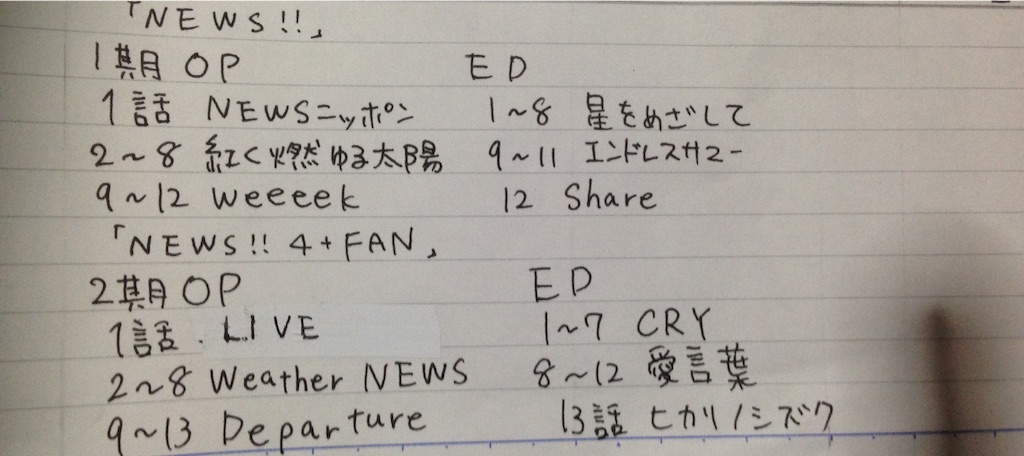 「NEWS!!」
1期 OP ED
1話 NEWSニッポン 1~8 星をめざして
2~8 紅く燃ゆる太陽 9~11 エンドレスサマー
9~12 weeeek 12 Share
「NEWS!! 4+FAN」
2期 OP ED
1話. LIVE 1~7 CRY
2~8 Weather NEWS 8~12 愛言葉
9~13 Departure 13話 ヒカリノシズク